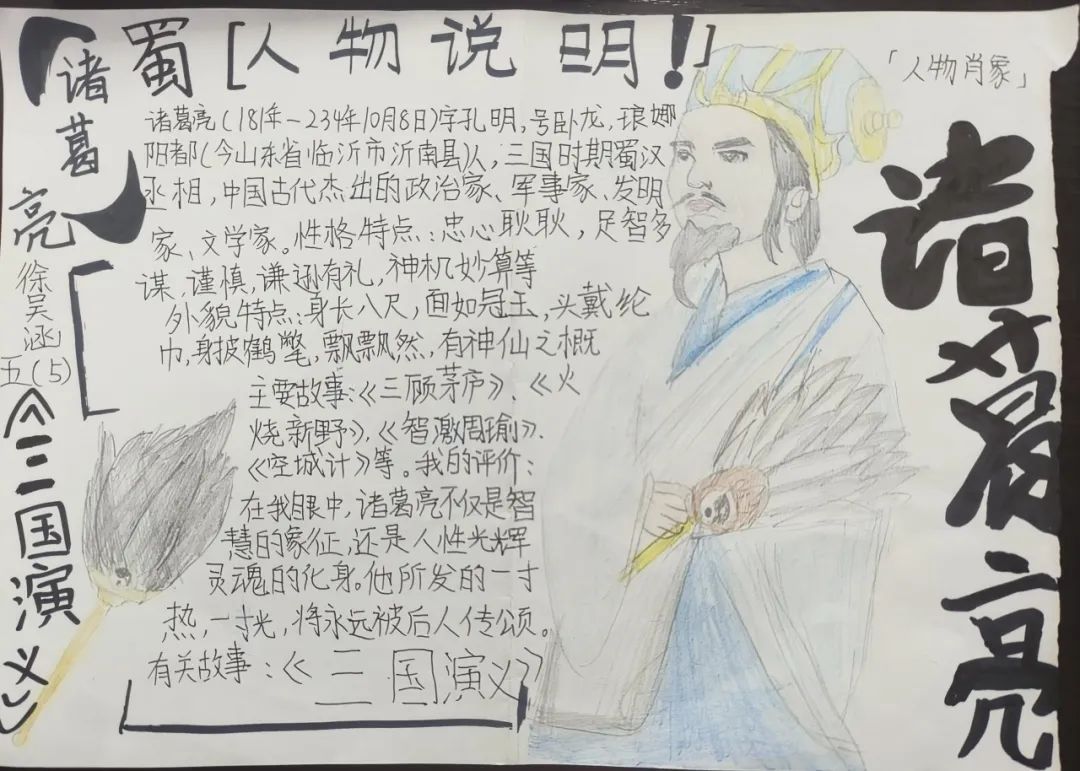 蜀[人物说明!]
诸葛亮
徐吴涵
五(5)
《三国演义》
「人物肖象」
诸葛亮
诸葛亮(181年-234年10月8日)字孔明,号卧龙,琅娜
阳都(今山东省临沂市沂南县)人,三国时期蜀汉
丞相,中国古代杰出的政治家、军事家、发明
家、文学家。性格特点:忠心耿耿,足智多
谋,谨慎,谦逊有礼,神机妙算等
外貌特点:身长八尺,面如冠玉,头戴纶
巾,身披鹤氅,飘飘然,有神仙之概
主要故事:《三顾茅庐》、《火
烧新野》,《智激周瑜》、
《空城计》等。我的评价:
在我眼中,诸葛亮不仅是智
慧的象征,还是人性光辉
灵魂的化身。他所发的一寸
热,一寸光,将永远被后人传颂。
有关故事:《三国演义》